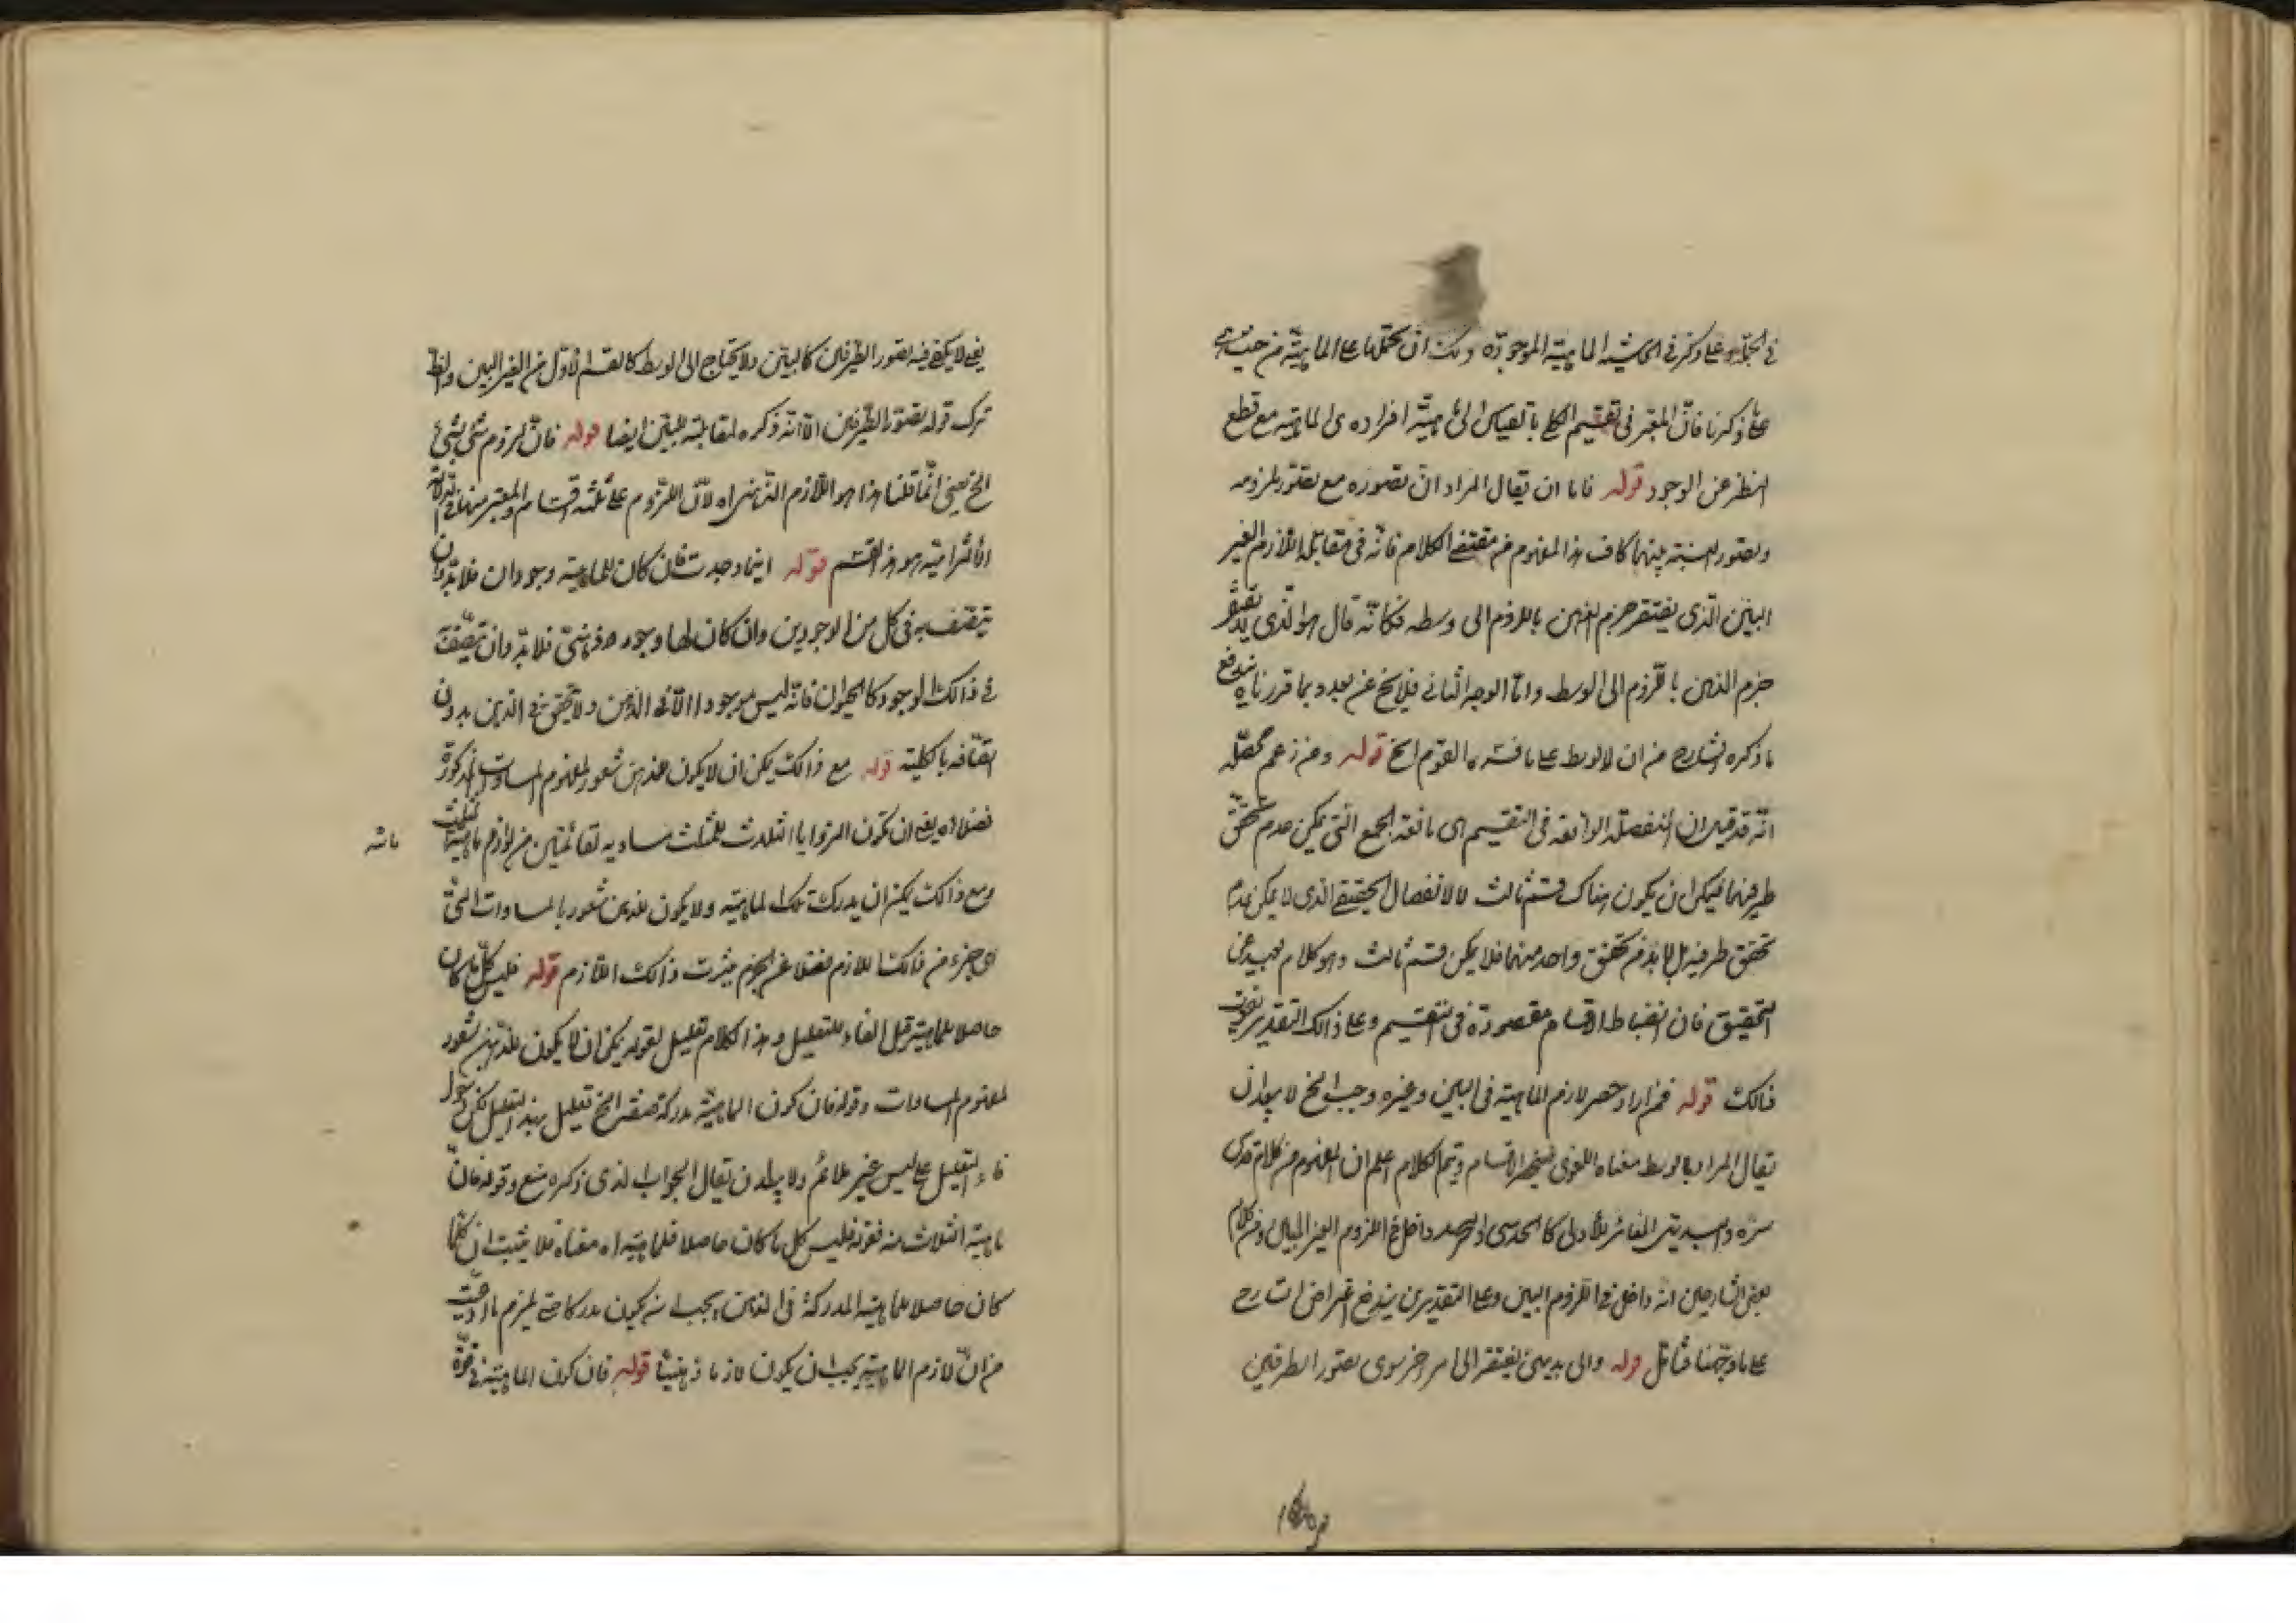 في الجملة وعلى ما ذكر في الحاشية الماهية الموجودة ولك ان تحملها على الماهية من حيث هي
على ما ذكرنا فانّ المعتبر في تقسيم الكلي بالقياس الى ماهيّة افراده هي الماهية مع قطع
النظر عن الوجود قوله فاما ان يقال المراد ان تصوره مع تصوّر ملزومه
وتصور النسبة بينهما كاف هذا المفهوم من مقتضى الكلام فانّه في مقابلة اللّازم الغير
البيّن الّذي يفتقر جزم الذهن باللزوم الى وسط فكانّه قال هو الّذي لا يفتقر
جزم الذهن باللّزوم الى الوسط وامّا الوجه الثاني فلا يخ عن بعد وبما قررناه يندفع
ما ذكره الشارح من ان لا وسط على ما فسّره القوم الخ قوله ومن زعم محصّله
انّه قد قيل ان المنفصلة الواقعة في التقسيم هي مانعة الجمع التي يمكن عدم تحقّق
طرفيهما فيمكن ان يكون هناك قسم ثالث لا الانفصال الحقيقي الذي لا يمكن عدم
تحقق طرفيه بل لا بد من تحقق واحد منهما فلا يمكن قسم ثالث وهو كلام بعيد عن
التحقيق فان انضباط الاقسام مقصودة في التقسيم وعلى ذالك التقدير يفوت
ذالك قوله فمن اراد حصر لازم الماهية في البين وغيره وجب الخ لا يبعد ان
يقال المراد بالوسط معناه اللغوي فينحصر الاقسام ويتم الكلام اعلم ان المفهوم من كلام قدس
سره والبديهي المغاير للأولى كالحدسي داخل في اللزوم الغير البين ومن كلام
بعض الشارحين انه داخل في اللّزوم البين وعلى التقديرين يندفع اعتراض الشارح
على ما وجّهنا فتأمّل قوله والى بديهي يفتقر الى امر اخر سوى تصور الطرفين
يعني لا يكفي فيه تصور الطّرفين كالبيّن ولا يحتاج الى الوسط كالقسم الأوّل من الغير البين
ترك قوله تصوّر الطّرفين الّا انّه ذكره لمقابلة البيّن ايضا قوله فانّ لزوم شئ لشئ
الخ يعني انّما قلنا هذا هو اللّازم لأنّ اللّزوم على ثلثة اقسام والمعتبر منها في
الألتزامية هو هذا القسم قوله اينما وجدت فان كان للماهيّة وجودان فلا بدّ وان
يتصف به في كل من الوجودين وان كان لها وجود فلا بدّ وان تتّصف
في ذالك الوجود كالحيوان فانّه ليس موجودا الّا في الذهن ولا يتحقق في الذهن بدون
اتّصافه بالكلية قوله مع ذالك يمكن ان لا يكون للذهن شعور بمفهوم المساوات المذكورة
فضلا اه يعني ان كون الزوايا الثلاث للمثلث مساوية لقائمتين من لوازم ماهية المثلث
ومع ذالك يمكن ان يدرك تلك الماهيّة ولا يكون للذهن شعور بالمساوات الّتي
هي جزء من ذالك اللازم فضلا عن الجزم بثبوت ذالك اللّازم قوله فليس كلّ ما كان
حاصلا للماهيّة قيل الفاء للتعليل وهذا الكلام تعليل لقوله يمكن ان لا يكون للذّهن شعور
لمفهوم المساوات وقوله فان كون الماهيّة مدركة الخ تعليل لهذا التعليل لكن دخول
فاء التعليل على ليس غير ملائم ولا يبعد ان يقال الجواب الذي ذكره منع وقوله فانّ
ماهية الثلاث فقوله فليس كل ما كان حاصلا للماهيّة اه معناه فلا يثبت ان كلّما
كان حاصلا للماهية المدركة في الذهن يجب ان يكون مدركا حتّى يلزم ما ادّعيت
من انّ لازم الماهيّة يجب ان يكون لازما ذهنيّا قوله فان كون الماهيّة في قوّة